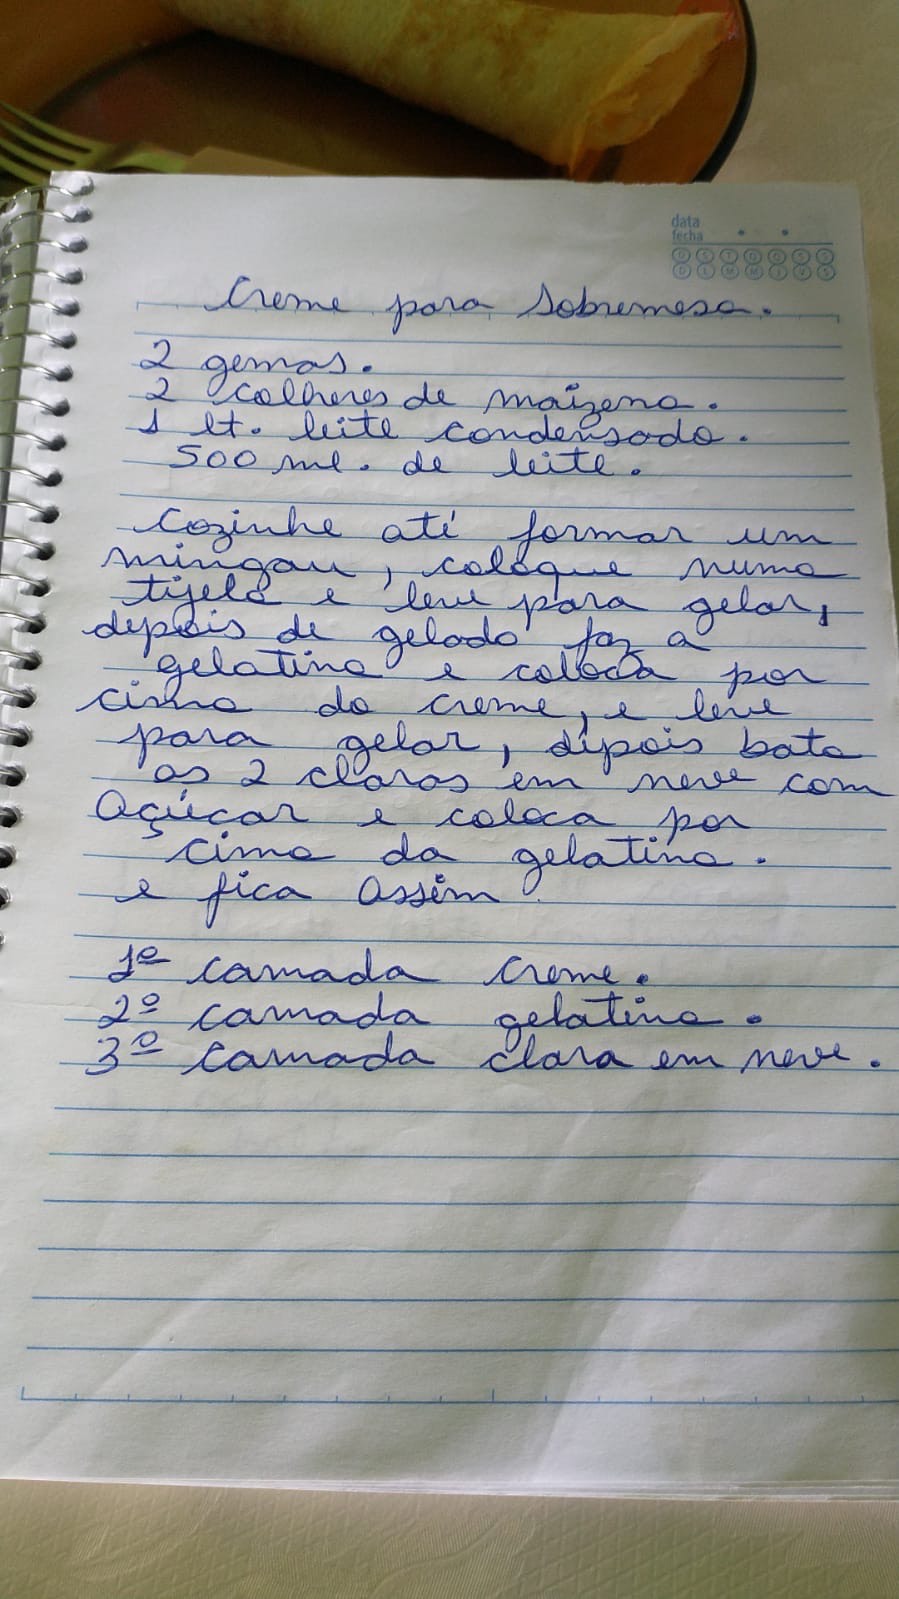 data
fecha
D S T Q Q S S
D L M M J V S
Creme para Sobremesa.
2 gemas.
2 colheres de maizena.
1 lt. leite condensado.
500 ml. de leite.
Cozinhe até formar um
mingau, coloque numa
tijela e leve para gelar,
depois de gelado faz a
gelatina e coloca por
cima do creme, e leve
para gelar, depois bata
as 2 claras em neve com
açúcar e coloca por
cima da gelatina.
e fica assim
1º camada creme.
2º camada gelatina.
3º camada clara em neve.